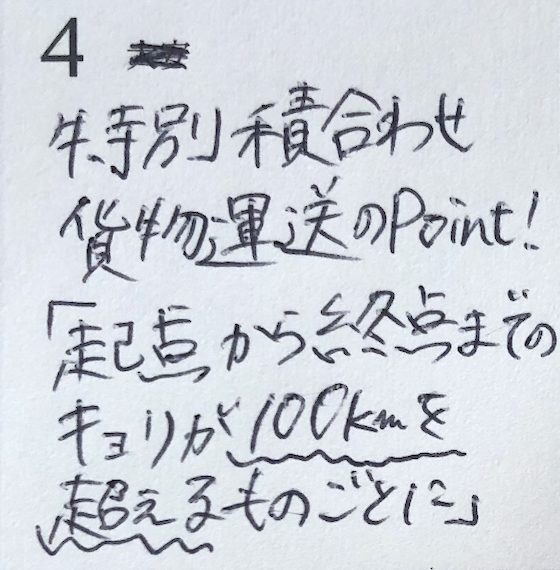 4
特別積合わせ
貨物運送のPoint!
「起点から終点までの
キョリが100kmを
超えるものごとに」